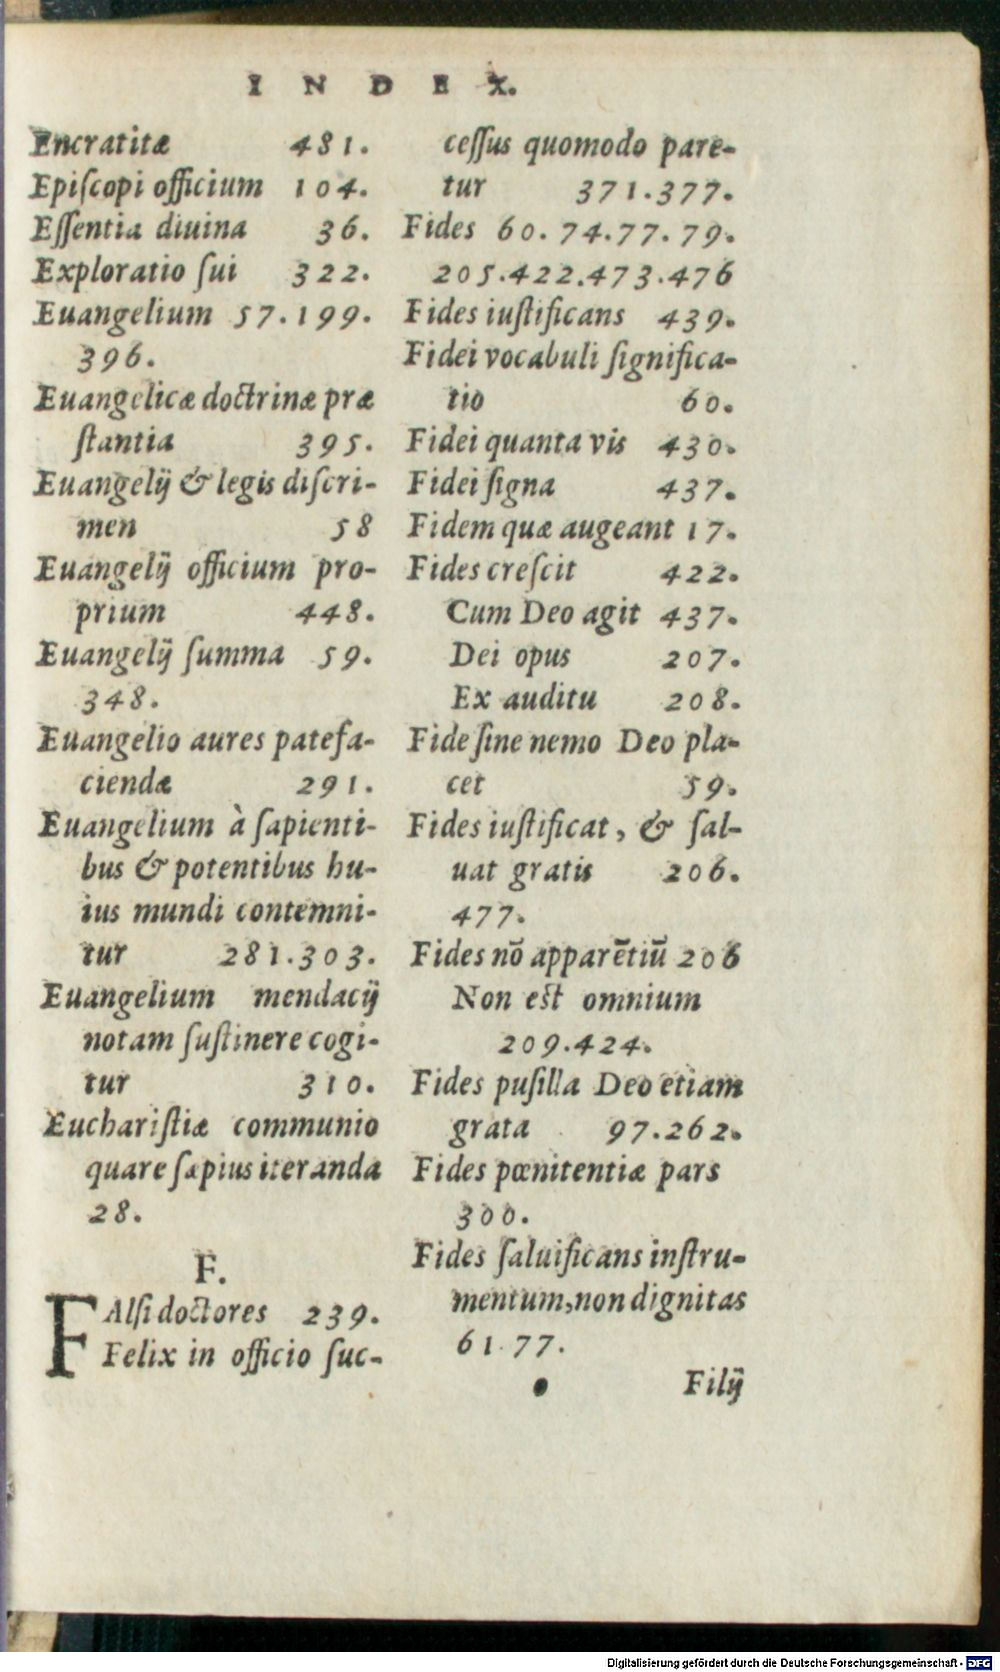 INDEX.
Encratitæ 481.
Epiſcopi officium 104.
Eſſentia diuina 36.
Exploratio ſui 322.
Euangelium 57.199.
396.
Euangelicæ doctrinæ præ
ſtantia 395.
Euangelij & legis diſcri-
men 58
Euangelij officium pro-
prium 448.
Euangelij ſumma 59.
348.
Euangelio aures patefa-
ciendæ 291.
Euangelium à ſapienti-
bus & potentibus hu-
ius mundi contemni-
tur 281.303.
Euangelium mendacij
notam ſuſtinere cogi-
tur 310.
Euchariſtiæ communio
quare ſæpius iteranda
28.
F.
FAlſi doctores 239.
Felix in officio ſuc-
ceſſus quomodo pare-
tur 371.377.
Fides 60.74.77.79.
205.422.473.476
Fides iuſtificans 439.
Fidei vocabuli ſignifica-
tio 60.
Fidei quanta vis 430.
Fidei ſigna 437.
Fidem quæ augeant 17.
Fides creſcit 422.
Cum Deo agit 437.
Dei opus 207.
Ex auditu 208.
Fide ſine nemo Deo pla-
cet 59.
Fides iuſtificat, & ſal-
uat gratis 206.
477.
Fides nō apparētiū 206
Non est omnium
209.424.
Fides puſilla Deo etiam
grata 97.262.
Fides pœnitentiæ pars
300.
Fides ſaluificans inſtru-
mentum, non dignitas
61.77.
Filij
Digitalisierung gefördert durch die Deutsche Forschungsgemeinschaft - DFG